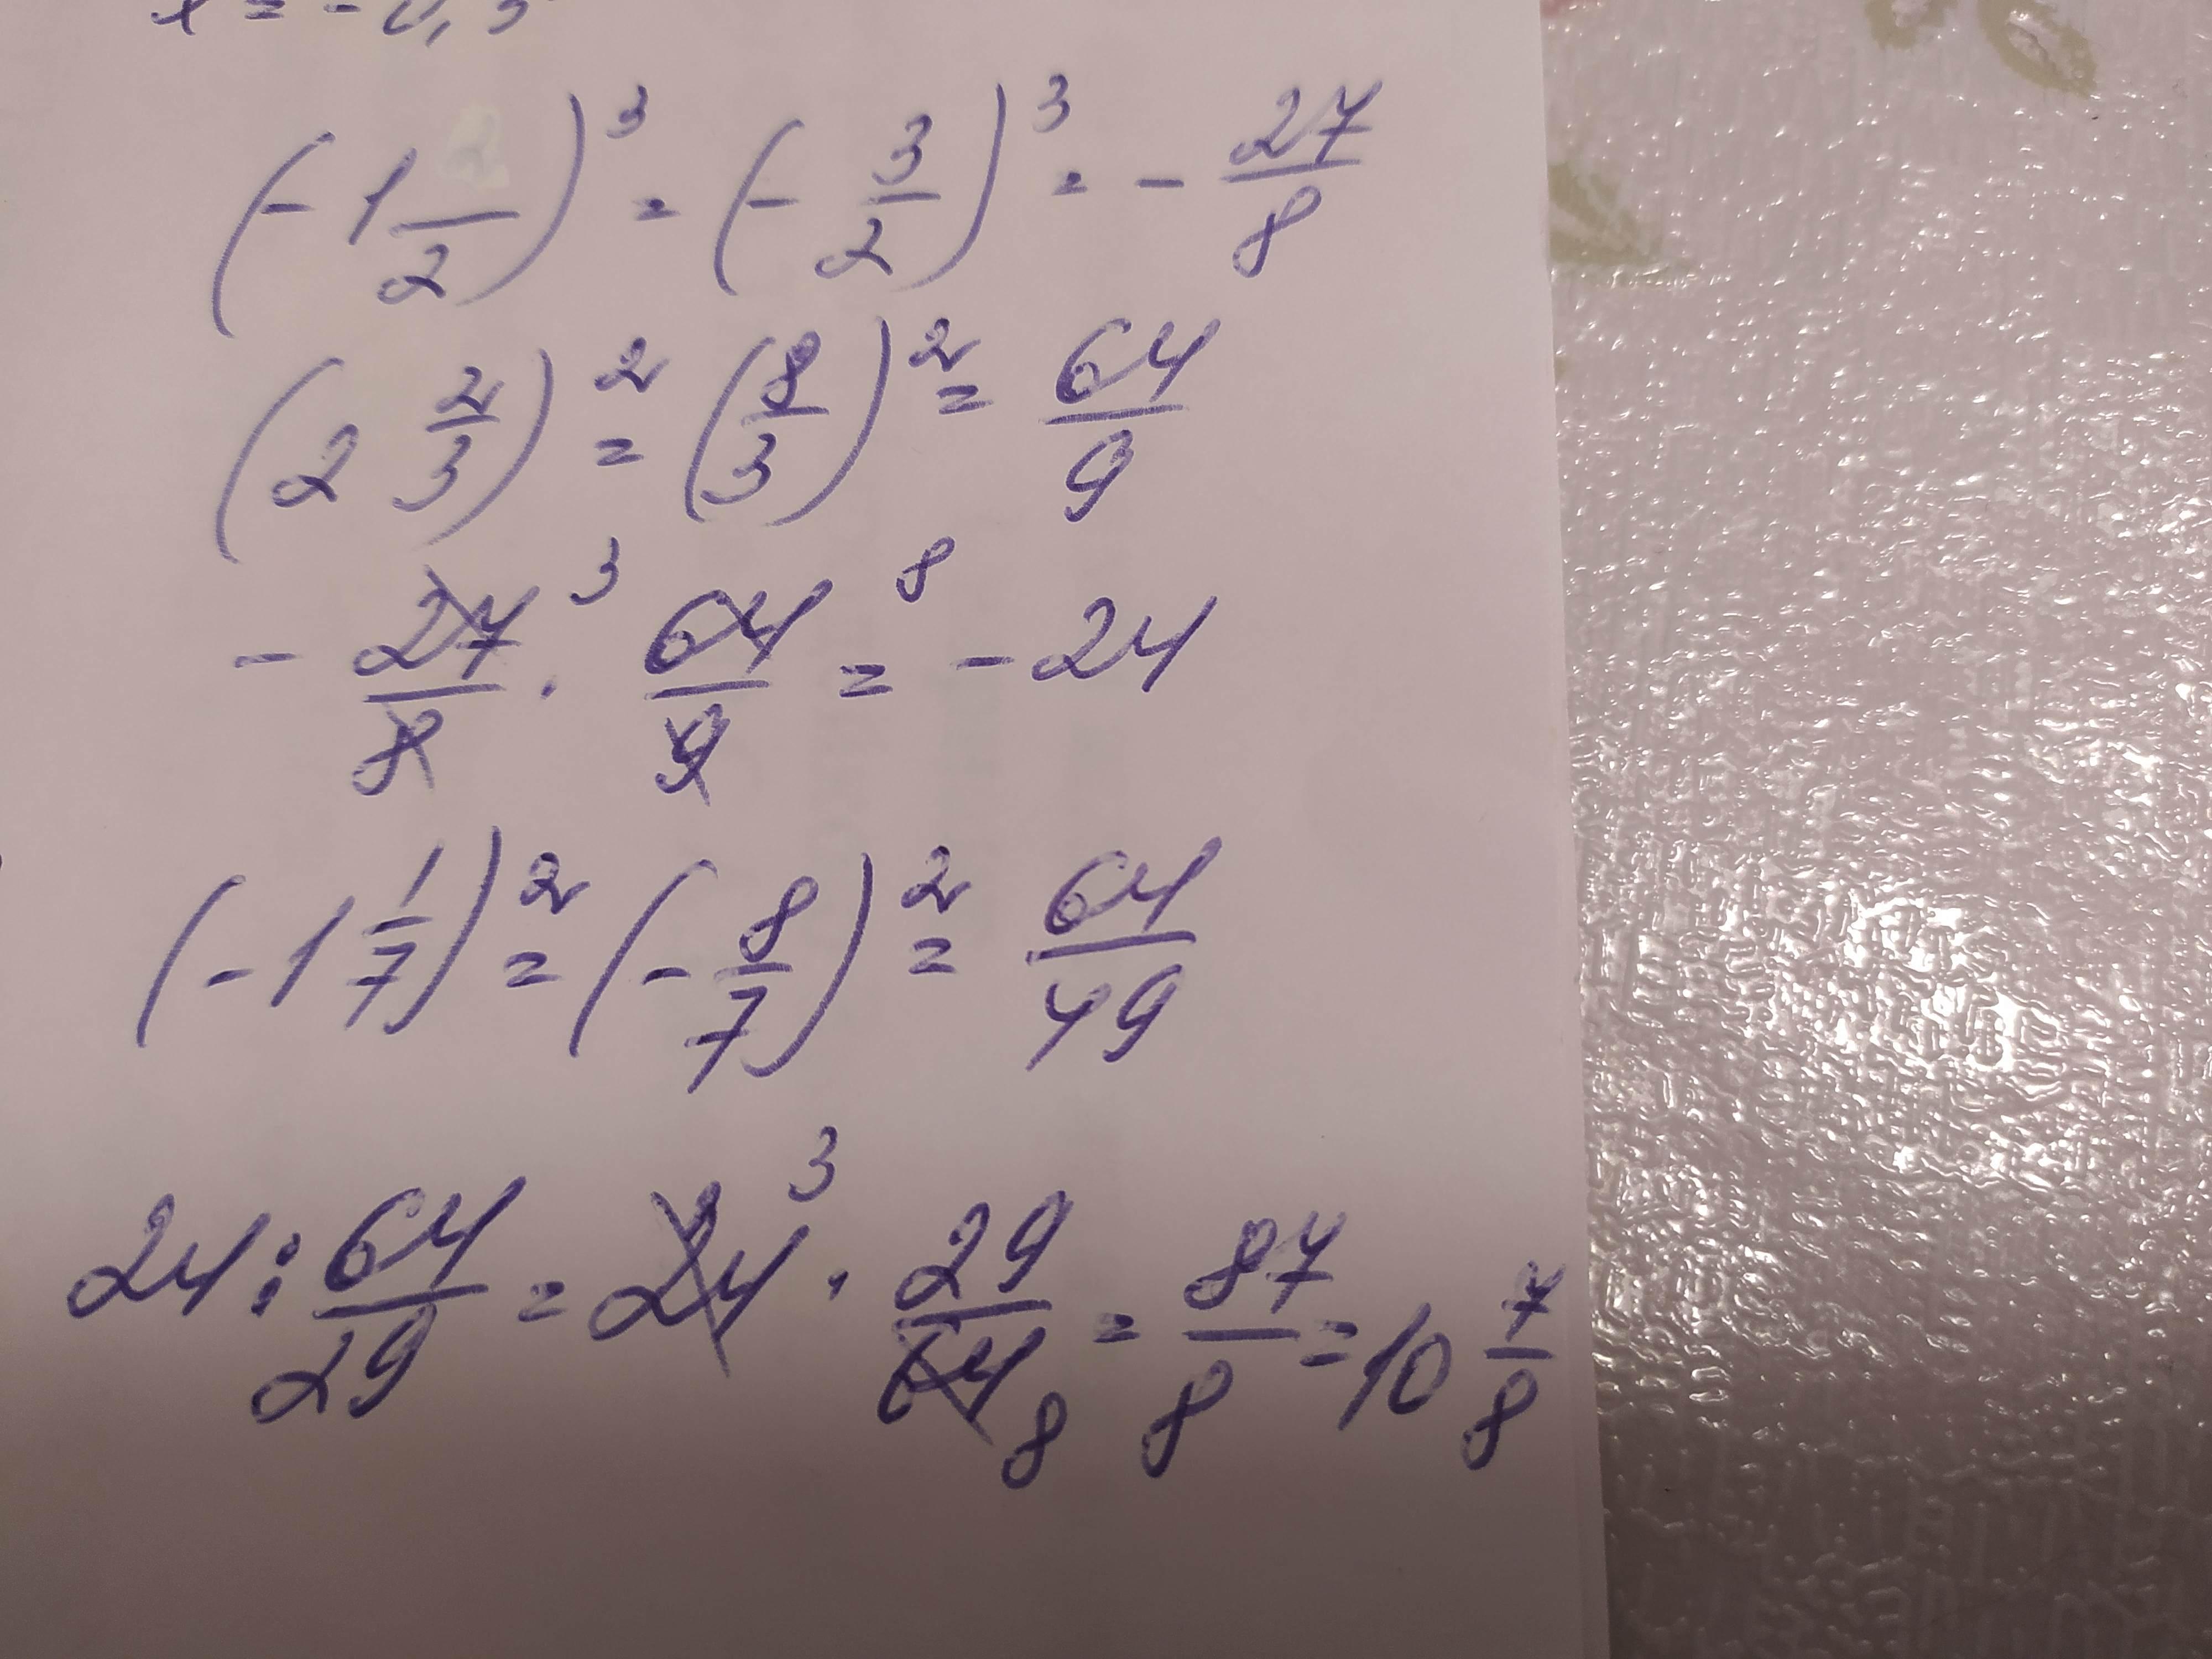 x = - 0,5
(- 1 —/2)³ = (- 3/2)³ = - 27/8
(2 2/3)² = (8/3)² = 64/9
- 27/8 ³ · 64/9 ⁸ = - 24
(- 1 1/7)² = (- 8/7)² = 64/49
24 : 64/29 = 24 ³ · 29/64 8 = 87/8 = 10 7/8